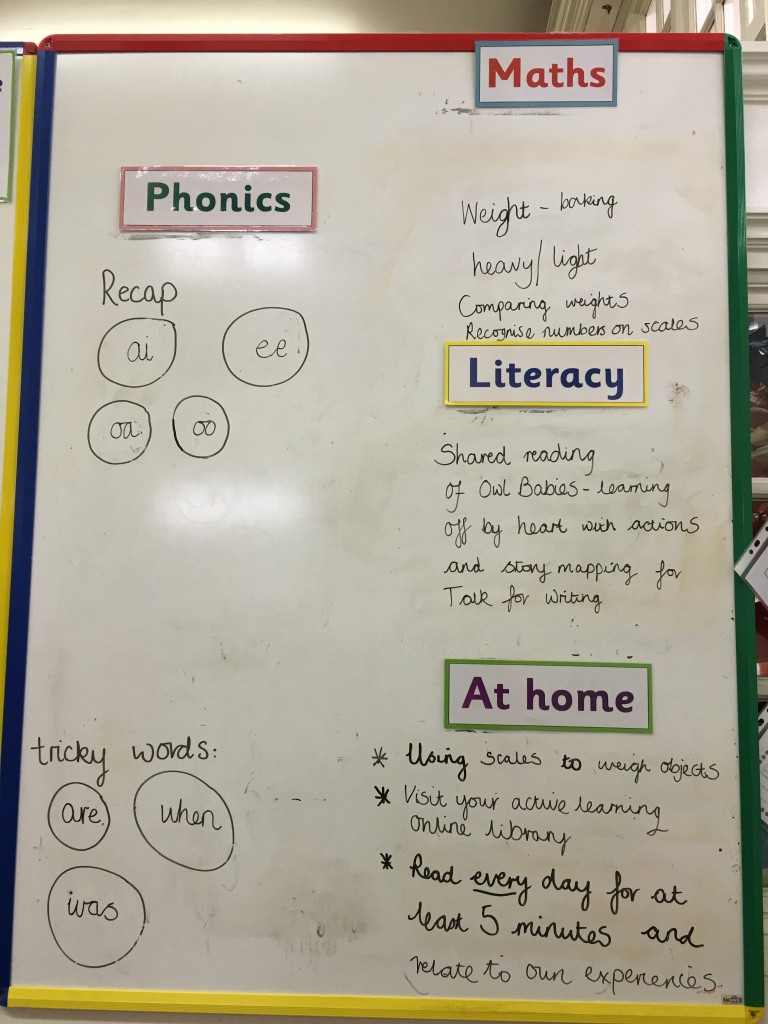 Phonics
Recap
ai ee
oa oo
tricky words:
are when
was
Maths
Weight - baking
heavy/light
Comparing weights
Recognise numbers on scales
Literacy
Shared reading
of Owl Babies - learning
off by heart with actions
and story mapping for
Talk for Writing
At home
* Using scales to weigh objects
* Visit your active learning
online library
* Read every day for at
least 5 minutes and
relate to own experiences.